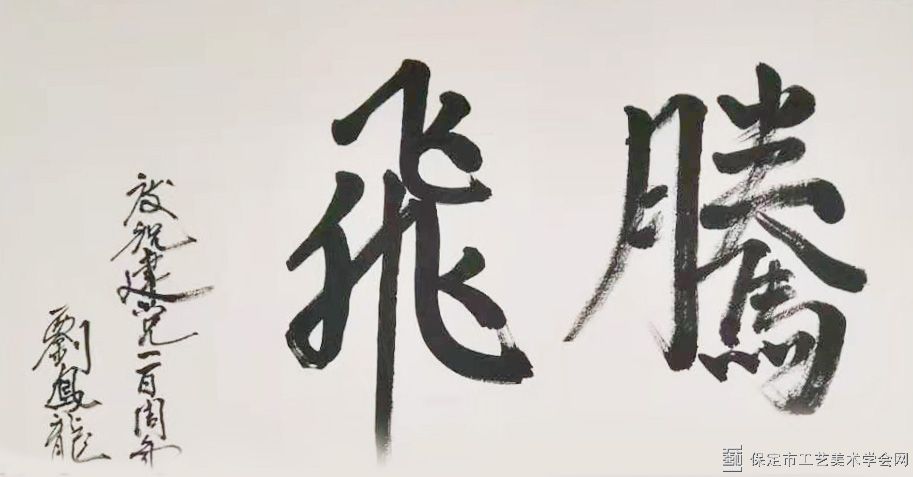 騰飛
慶祝建党一百周年
劉鳳龍
保定市工艺美术学会网